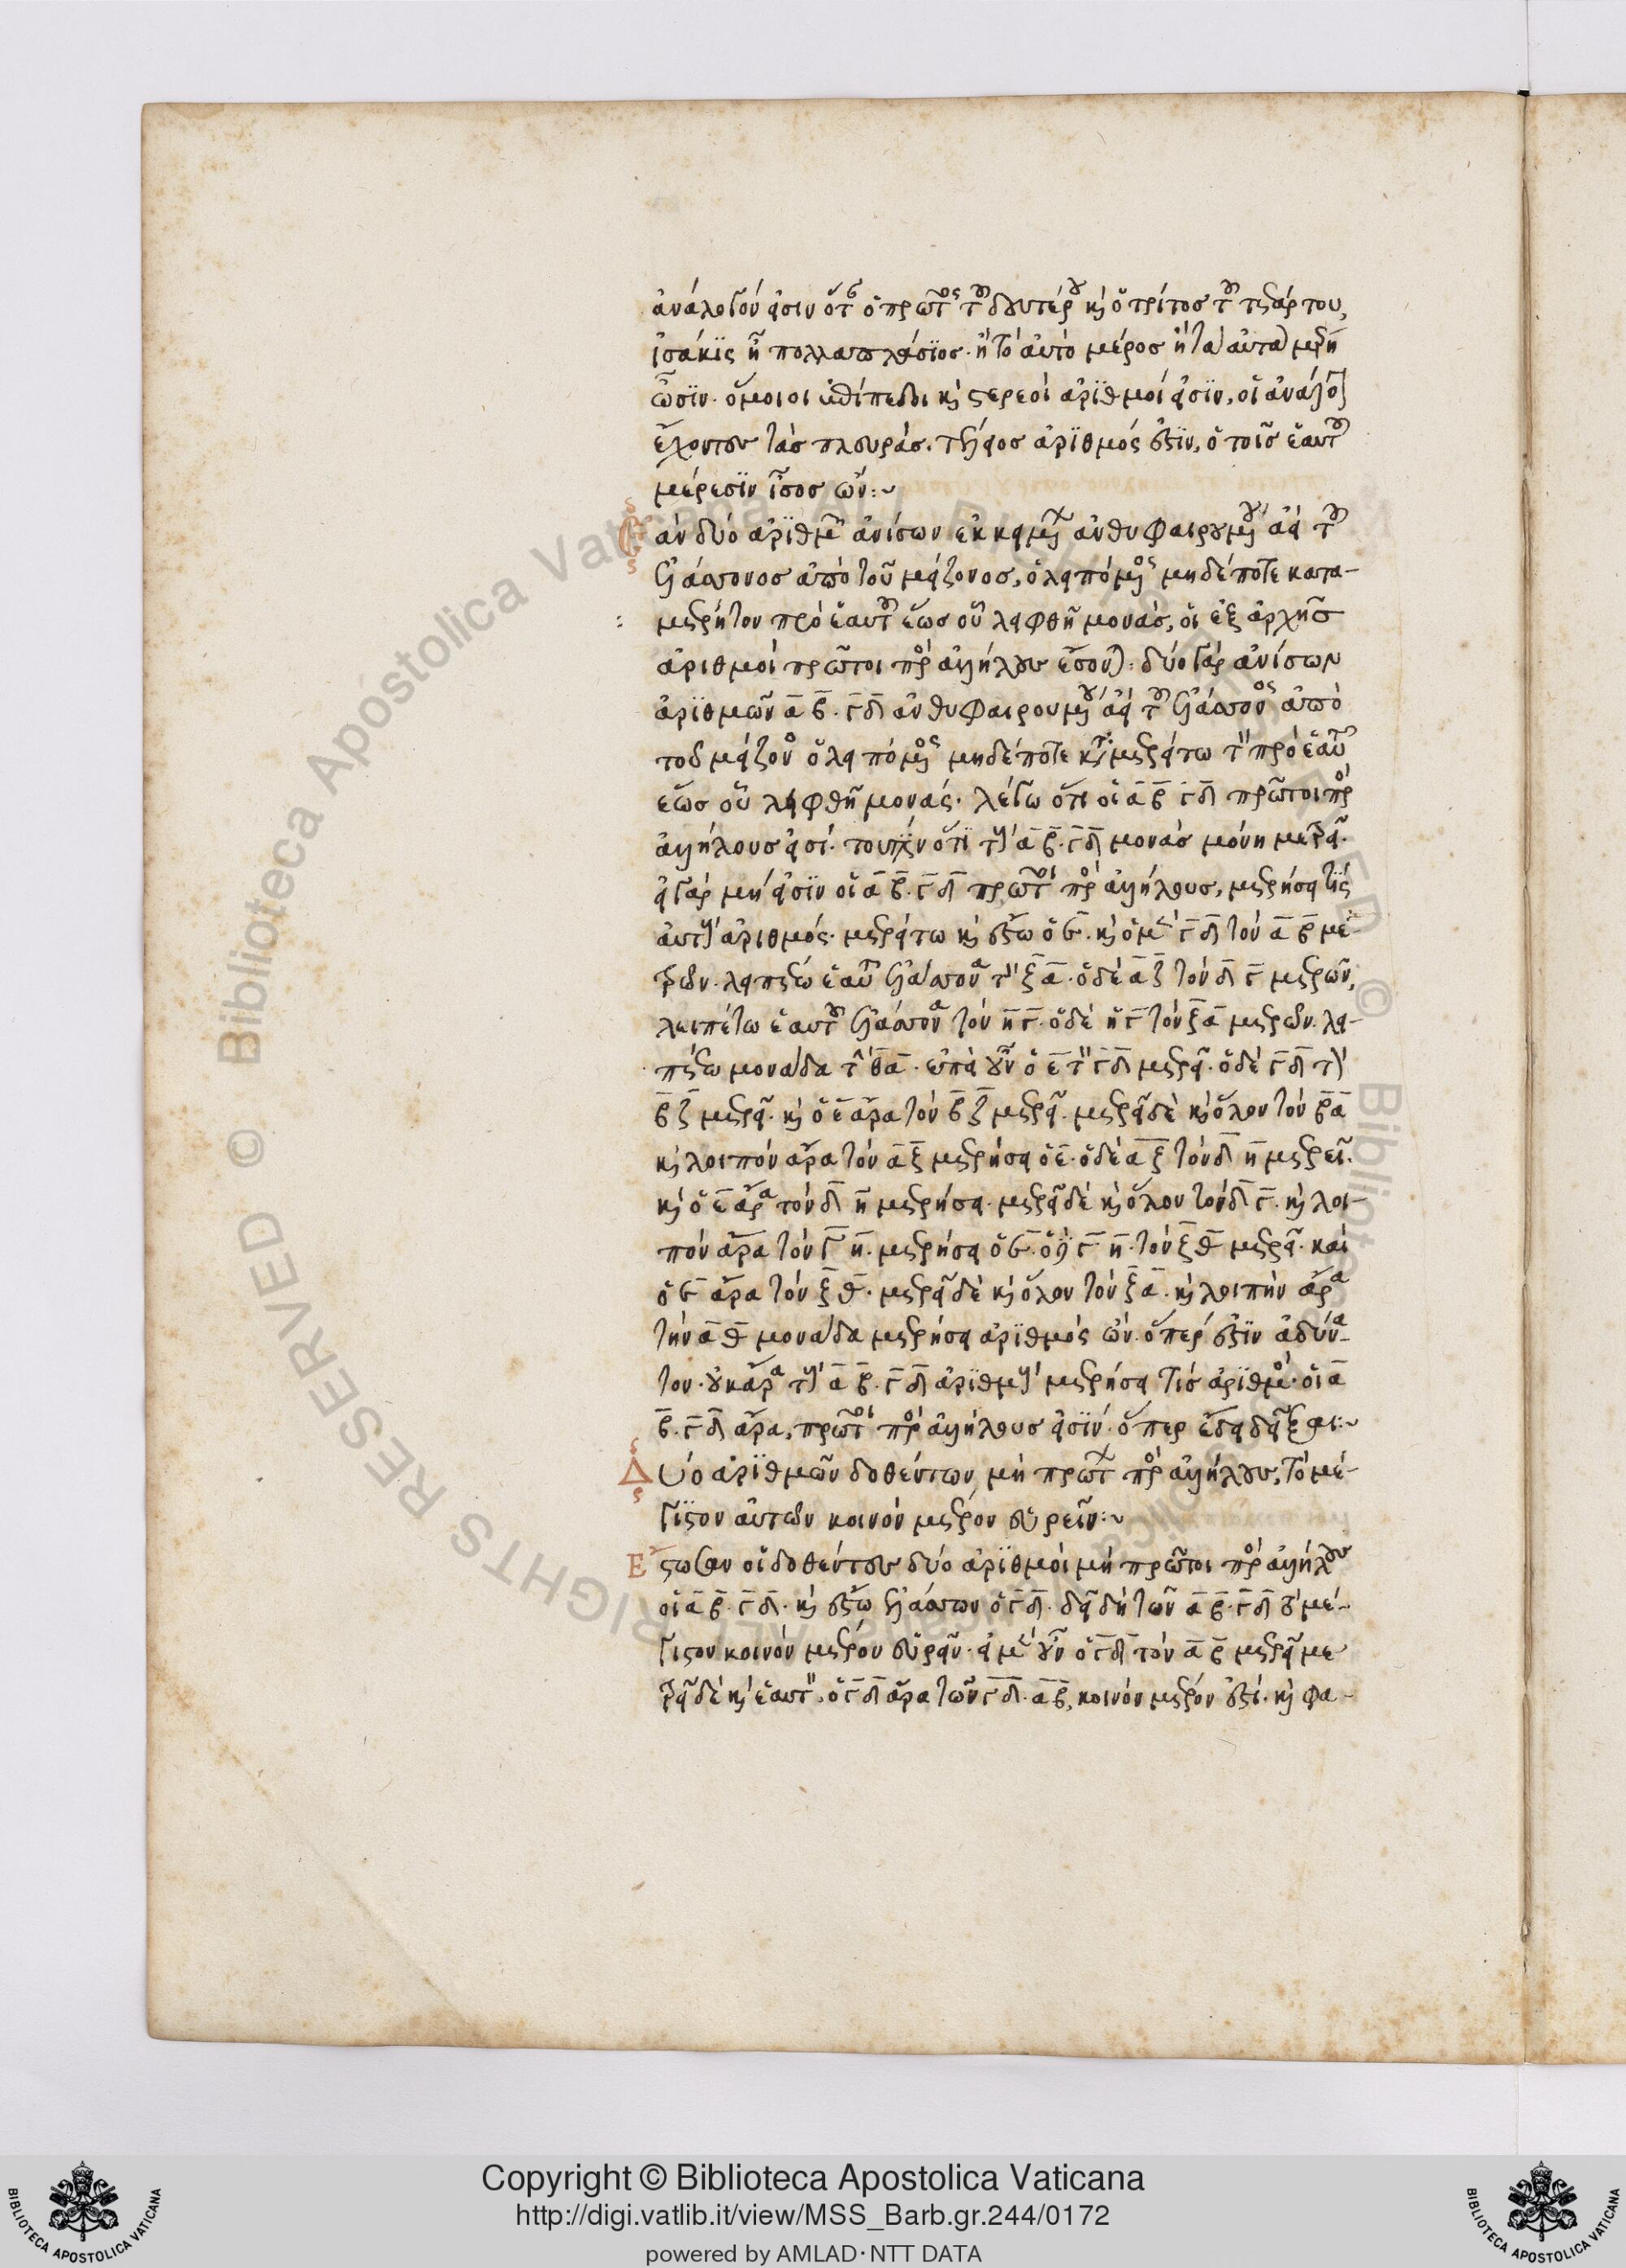 ἀνάλογόν εἰσιν ὅταν ὁ πρῶτος τοῦ δευτέρου καὶ ὁ τρίτος τοῦ τετάρτου,
ἰσάκϊς ἢ πολλαπλάσϊος. ἢ τὸ αὐτὸ μέρος ἢ τὰ αὐτὰ μέρη
ὦσϊν. ὅμοιοι ἐπίπεδοι καὶ στερεοὶ ἀρϊθμοί εἰσϊν, οἱ ἀνάλογον
ἔχοντες τὰς πλευράς. τέλειος ἀρϊθμός ἐστϊν, ὁ τοῖς ἑαυτοῦ
μέρεσϊν ἴσος ὤν:~
Ἐὰν δύο ἀρϊθμῶν ἀνίσων ἐκκειμένων ἀνθυφαιρουμένου ἀεὶ τοῦ
ἐλάσσονος ἀπὸ τοῦ μείζονος, ὁ λειπόμενος μηδέποτε κατα-
μετρῆ τὸν πρὸ ἑαυτοῦ ἕως οὗ λειφθῆ μονάς, οἱ ἐξ ἀρχῆς
ἀριθμοὶ πρῶτοι πρὸς ἀλλήλους ἔσονται: δύο γὰρ ἀνίσων
ἀρϊθμῶν α β. γ δ ἀνθυφαιρουμένου ἀεὶ τοῦ ἐλάσσονος ἀπὸ
τοῦ μείζονος ὁ λειπόμενος μηδέποτε καταμετρείτω τὸν πρὸ ἑαυτοῦ
ἕως οὗ λειφθῆ μονάς. λέγω ὅτι οἱ α β γ δ πρῶτοι πρὸς
ἀλλήλους εἰσί. τουτέστιν ὅτϊ τοὺς α β. γ δ μονὰς μόνη μετρεῖ.
εἰ γὰρ μή εἰσϊν οἱ α β. γ δ πρῶτοι πρὸς ἀλλήλους, μετρήσει τϊς
αὐτοὺς ἀριθμός. μετρείτω καὶ ἔστω ὁ ε. καὶ ὁ μὲν γ δ τὸν α β με-
τρῶν. λειπέτω ἑαυτοῦ ἐλάσσονα τὸν ζ α. ὁ δὲ α ζ τὸν δ γ μετρῶν,
λειπέτω ἑαυτοῦ ἐλάσσονα τὸν η γ. ὁ δὲ η γ τὸν ζ α μετρῶν. λει-
πέτω μονάδα τὴν θ α. ἐπεὶ οὖν ὁ ε τὸν γ δ μετρεῖ. ὁ δὲ γ δ τὸν
β ζ μετρεῖ. καὶ ὁ ε ἄρα τὸν β ζ μετρεῖ. μετρεῖ δὲ καὶ ὅλον τὸν β α
καὶ λοιπὸν ἄρα τὸν α ζ μετρήσει ὁ ε. ὁ δὲ α ζ τὸν δ η μετρεῖ.
καὶ ὁ ε ἄρα τὸν δ η μετρήσει. μετρεῖ δὲ καὶ ὅλον τὸν δ γ. καὶ λοι-
πὸν ἄρα τὸν γ η. μετρήσει ὁ ε. ὁ δὲ γ η. τὸν ζ θ μετρεῖ. καὶ
ὁ ε ἄρα τὸν ζ θ. μετρεῖ δὲ καὶ ὅλον τὸν ζ α. καὶ λοιπὴν ἄρα
τὴν α θ μονάδα μετρήσει ἀρϊθμὸς ὤν. ὅπερ ἐστϊν ἀδύνα-
τον. οὐκ ἄρα τοὺς α β. γ δ ἀρϊθμοὺς μετρήσει τὶς ἀρϊθμός. οἱ α
β. γ δ ἄρα, πρῶτοι πρὸς ἀλλήλους εἰσϊν. ὅπερ ἔδει δεῖξαι:~
Δύο ἀρϊθμῶν δοθέντων μὴ πρώτων πρὸς ἀλλήλους, τὸ μέ-
γϊστον αὐτῶν κοινὸν μέτρον εὑρεῖν:~
Ἔστωσαν οἱ δοθέντες δύο ἀρϊθμοὶ μὴ πρῶτοι πρὸς ἀλλήλους
οἱ α β. γ δ. καὶ ἔστω ἐλάσσων ὁ γ δ. δεῖ δὴ τῶν α β. γ δ τὸ μέ-
γιστον κοινὸν μέτρον εὑρεῖν. εἰ μὲν οὖν ὁ γ δ τὸν α β μετρεῖ με
τρεῖ δὲ καὶ ἑαυτόν. ὁ γ δ ἄρα τῶν γ δ. α β, κοινὸν μέτρον ἐστί. καὶ φα-
Copyright © Biblioteca Apostolica Vaticana
http://digi.vatlib.it/view/MSS_Barb.gr.244/0172
powered by AMLAD·NTT DATA